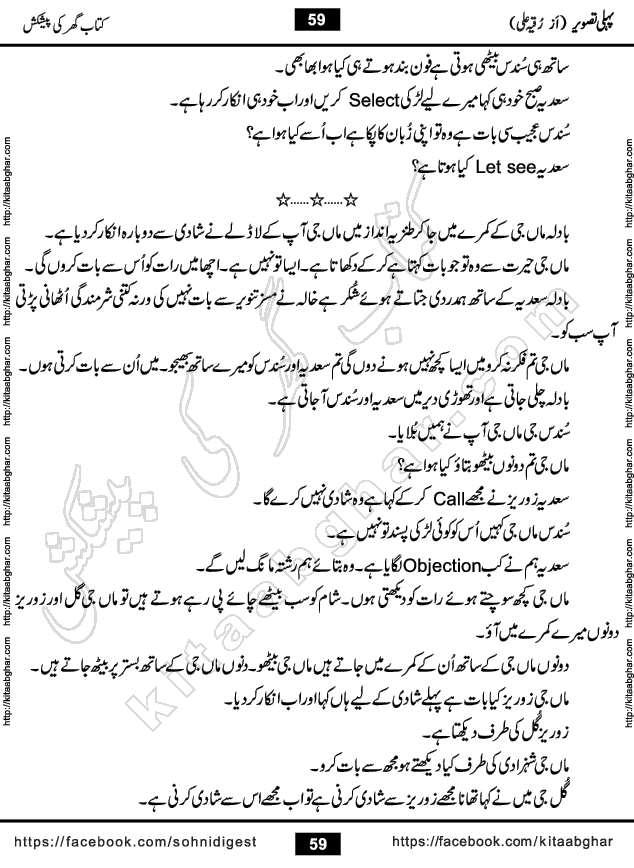 پہلی تصویر (از رُقیہ علی)
59
کتاب گھر کی پیشکش
ساتھ ہی سُندس بیٹھی ہوتی ہے فون بند ہوتے ہی کیا ہوا بھابھی۔
سعدیہ صبح خود ہی کہا میرے لیے لڑکی Select کریں اور اب خود ہی انکار کر رہا ہے۔
سُندس عجیب سی بات ہے وہ تو اپنی زُبان کا پکا ہے اب اُسے کیا ہوا ہے؟
سعدیہ Let see کیا ہوتا ہے؟
☆......☆......☆
بادلہ ماں جی کے کمرے میں جا کر طنزیہ انداز میں ماں جی آپ کے لاڈلے نے شادی سے دوبارہ انکار کر دیا ہے۔
ماں جی حیرت سے وہ تو جو بات کہتا ہے کر کے دکھاتا ہے۔ ایسا تو نہیں ہے۔ اچھا میں رات کو اُس سے بات کروں گی۔
بادلہ سعدیہ کے ساتھ ہمدردی جتاتے ہوئے شُکر ہے خالہ نے مسز تنویر سے بات نہیں کی ورنہ کتنی شرمندگی اُٹھانی پڑتی
آپ سب کو۔
ماں جی تم فکر نہ کرو میں ایسا کچھ نہیں ہونے دوں گی تم سعدیہ اور سُندس کو میرے ساتھ بھیجو۔ میں اُن سے بات کرتی ہوں۔
بادلہ چلی جاتی ہے اور تھوڑی دیر میں سعدیہ اور سُندس آ جاتی ہے۔
سُندس جی ماں جی آپ نے ہمیں بُلایا۔
ماں جی تم دونوں بیٹھو بتاؤ کیا ہوا ہے؟
سعدیہ زوریز نے مجھے Call کر کے کہا ہے وہ شادی نہیں کرے گا۔
سُندس ماں جی کہیں اُس کو کوئی لڑکی پسند تو نہیں ہے۔
سعدیہ ہم نے کب Objection لگایا ہے۔ وہ بتائے ہم رشتہ مانگ لیں گے۔
ماں جی کچھ سوچتے ہوئے رات کو دیکھتی ہوں۔ شام کو سب بیٹھے چائے پی رہے ہوتے ہیں تو ماں جی گل اور زوریز
دونوں میرے کمرے میں آؤ۔
دونوں ماں جی کے ساتھ اُن کے کمرے میں جاتے ہیں ماں جی بیٹھو۔ دنوں ماں جی کے ساتھ بستر پر بیٹھ جاتے ہیں۔
ماں جی زوریز کیا بات ہے پہلے شادی کے لیے ہاں کہا اور اب انکار کر دیا۔
زوریز گُل کی طرف دیکھتا ہے۔
ماں جی شہزادی کی طرف کیا دیکھتے ہو مجھ سے بات کرو۔
گُل جی میں نے کہا تھا نا مجھے زوریز سے شادی کرنی ہے تو اب مجھے اس سے شادی کرنی ہے۔
کتاب گھر کی پیشکش
kitaabghar.com
http://kitaabghar.com http://kitaabghar.com http://kitaabghar.com http://kitaabghar.com http://kitaabghar.com http://kitaabghar.com
http://kitaabghar.com http://kitaabghar.com http://kitaabghar.com http://kitaabghar.com http://kitaabghar.com http://kitaabghar.com
https://facebook.com/sohnidigest
59
https://facebook.com/kitaabghar